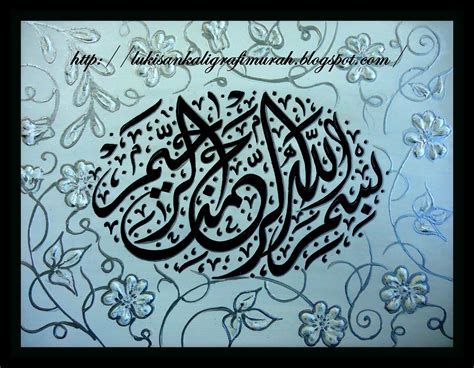 http: //lukisankaligrafimurah.blogspot.com/
بسم الله الرحمن الرحيم